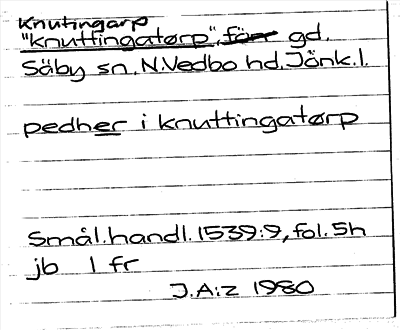 Knutingarp
"Knuttingatørp", gd.
Säby sn, N.Vedbo hd, Jönk.l.
pedher i knuttingatørp
Smål.handl. 1539:9, fol. 5h
jb 1 fr
J.A:z 1980